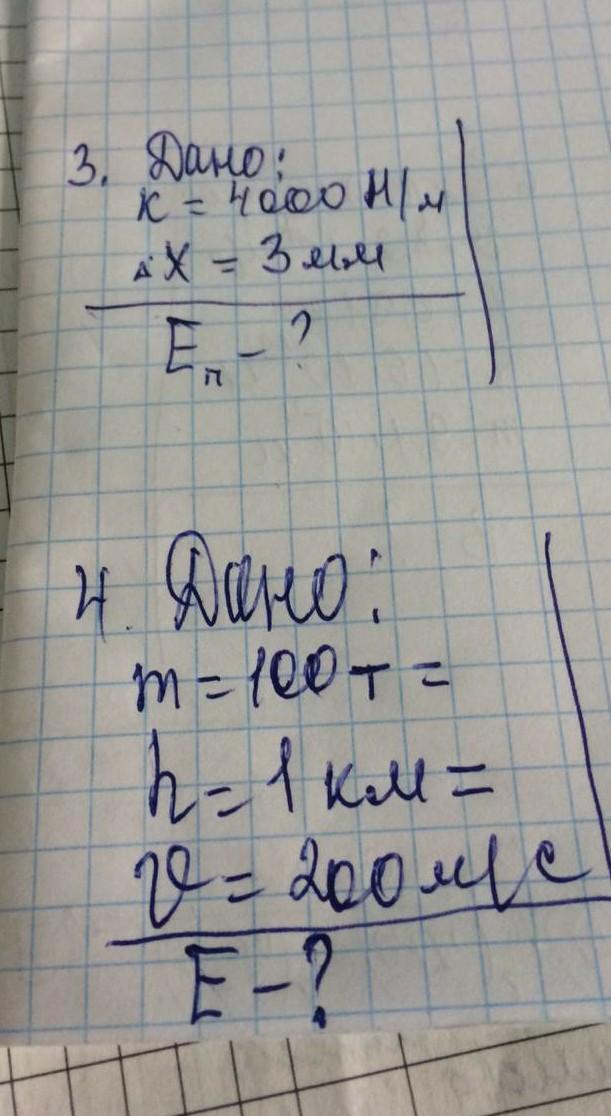 3. Дано:
к = 4000 Н/м
ΔX = 3 мм
Eп - ?
4. Дано:
m = 100 т =
h = 1 км =
υ = 200 м/с
E - ?